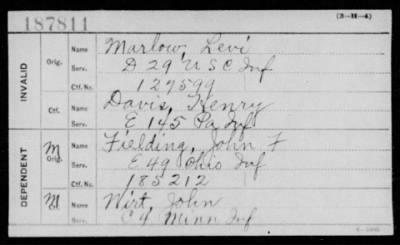 187811
(3-111-4)
INVALID
Orig.
Name Marlow, Levi
Serv. D 29 U S C Inf
Ctf. No. 127599
Ctf.
Name Davis, Henry
Serv. E 145 Pa Inf
DEPENDENT
M
Orig.
Name Fielding, John F
Serv. E 49 Ohio Inf
Ctf. No. 185212
M
Name Wirt, John
Serv. C 9 Minn Inf